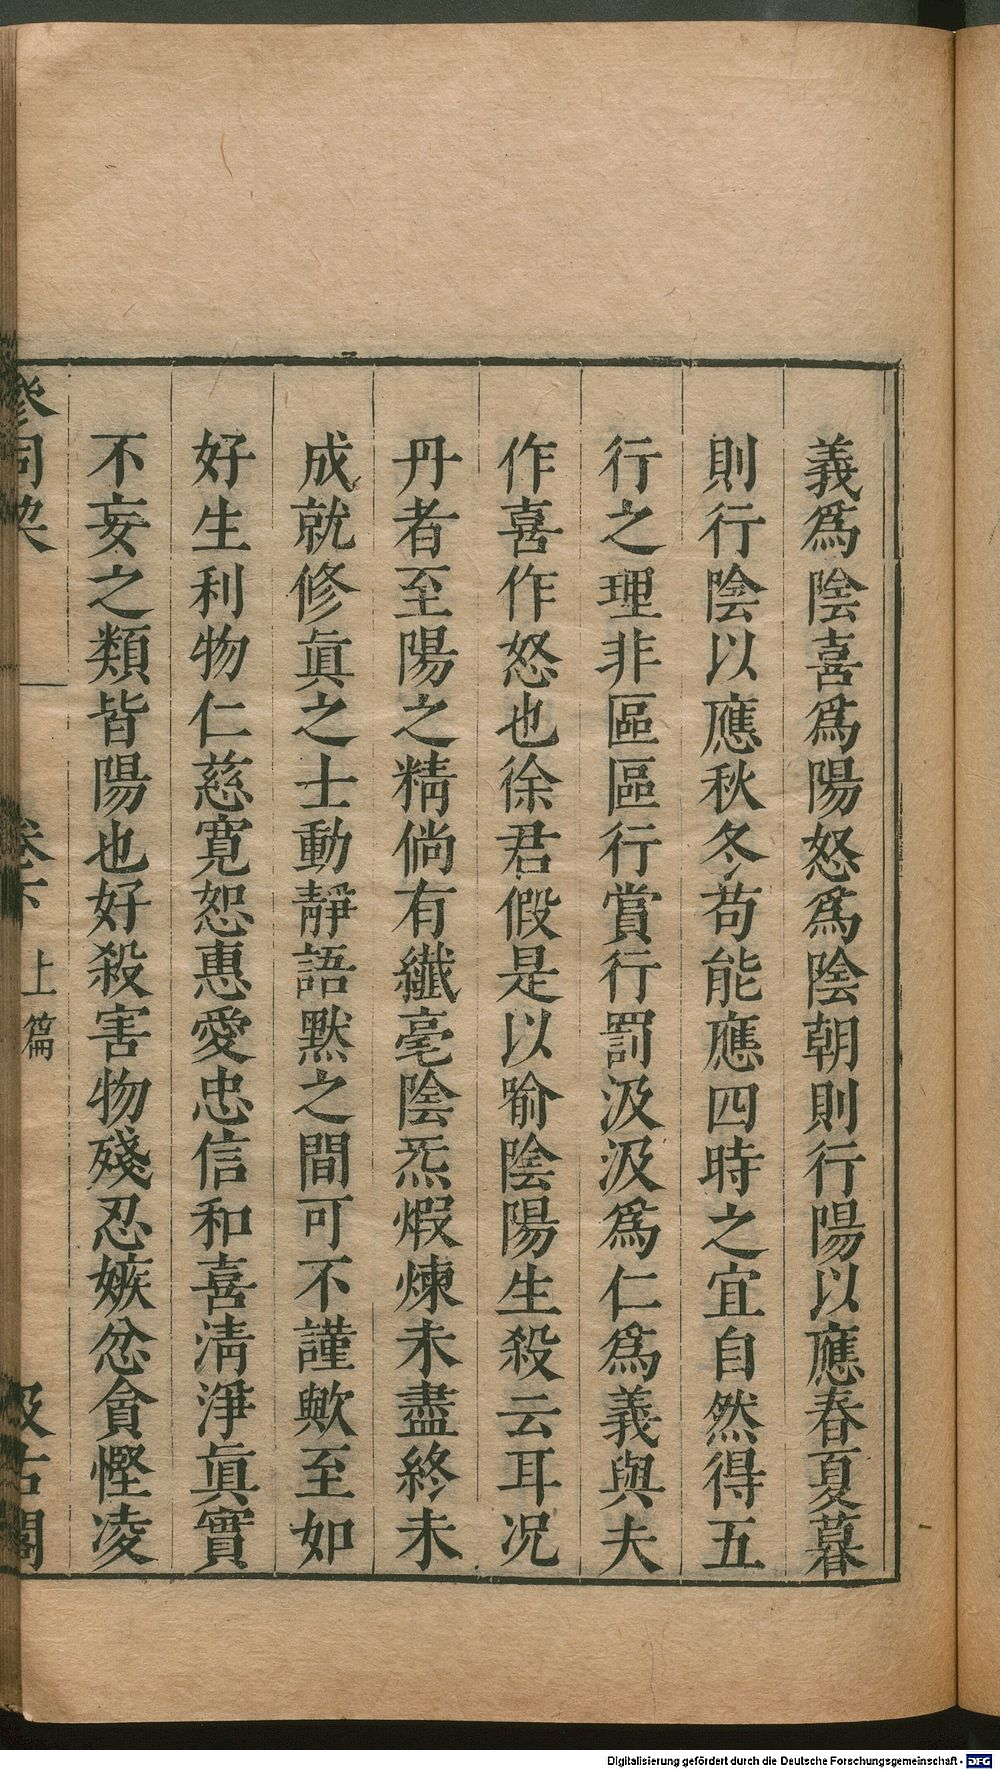 義爲陰喜爲陽怒爲陰朝則行陽以應春夏暮
則行陰以應秋冬苟能應四時之宜自然得五
行之理非區區行賞行罰汲汲爲仁爲義與夫
作喜作怒也徐君假是以喻陰陽生殺云耳况
丹者至陽之精倘有纖毫陰炁煆煉未盡終未
成就修眞之士動靜語默之間可不謹歟至如
好生利物仁慈寬恕惠愛忠信和喜淸淨眞實
不妄之類皆陽也好殺害物殘忍嫉忿貪慳凌
參同契 卷下 上篇 汲古閣
Digitalisierung gefördert durch die Deutsche Forschungsgemeinschaft - DFG